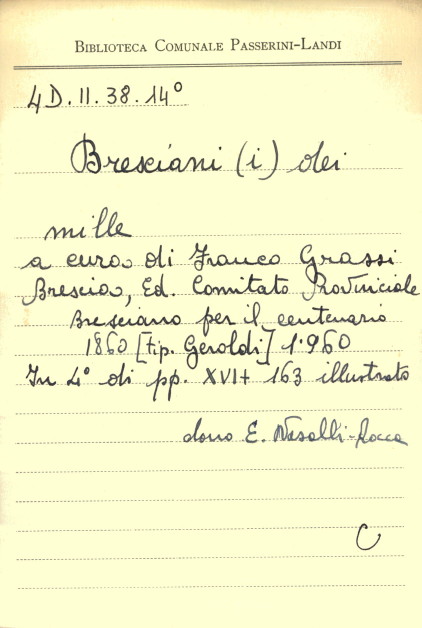 BIBLIOTECA COMUNALE PASSERINI-LANDI
4D.II.38.14°
Bresciani (i) dei
mille
a cura di Franco Grassi
Brescia, Ed. Comitato Provinciale
Bresciano per il centenario
1860 [tip. Geroldi] 1960
In 4° di pp. XVI + 163 illustrato
dono E. Nasalli-Rocca
C